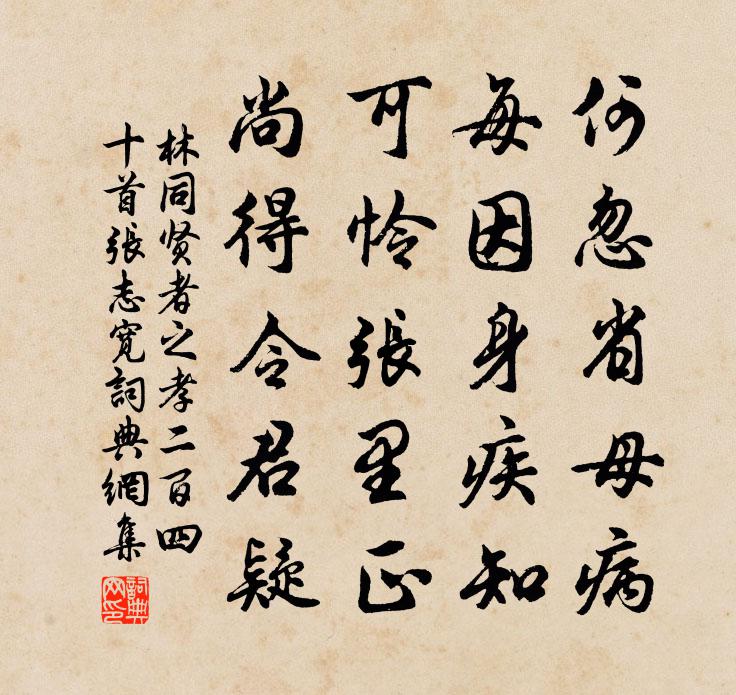 何忽省母病
每因身疾知
可怜張里正
尚得令君疑
林同贤者之孝二百四
十首張志宽詞典網集
詞典
网印